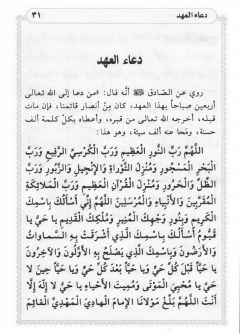 دعاء العهد ٣١
دعاء العهد
روي عن الصّادق ﷺ أنّه قال: «من دعا إلى الله تعالى
أربعين صباحاً بهذا العهد، كان مِنْ أنصار قائمنا، فإن مات
قبله، أخرجه الله تعالى من قبره، وأعطاه بكلّ كلمة ألف
حسنة، ومحا عنه ألف سيئة، وهو هذا:
اللَّهُمَّ رَبَّ النُّورِ الْعَظِيمِ وَرَبَّ الْكُرْسِيِّ الرَّفِيعِ وَرَبَّ
الْبَحْرِ الْمَسْجُورِ وَمُنْزِلَ التَّوْرَاةِ وَالْإِنْجِيلِ وَالزَّبُورِ وَرَبَّ
الظِّلِّ وَالْحَرُورِ وَمُنْزِلَ الْقُرْآنِ الْعَظِيمِ وَرَبَّ الْمَلَائِكَةِ
الْمُقَرَّبِينَ وَالْأَنْبِيَاءِ وَالْمُرْسَلِينَ اللَّهُمَّ إِنِّي أَسْأَلُكَ بِاسْمِكَ
الْكَرِيمِ وَبِنُورِ وَجْهِكَ الْمُنِيرِ وَمُلْكِكَ الْقَدِيمِ يَا حَيُّ يَا
قَيُّومُ أَسْأَلُكَ بِاسْمِكَ الَّذِي أَشْرَقَتْ بِهِ السَّمَاوَاتُ
وَالْأَرَضُونَ وَبِاسْمِكَ الَّذِي يَصْلَحُ بِهِ الْأَوَّلُونَ وَالْآخِرُونَ
يَا حَيًّا قَبْلَ كُلِّ حَيٍّ وَيَا حَيًّا بَعْدَ كُلِّ حَيٍّ وَيَا حَيًّا حِينَ لَا
حَيَّ يَا مُحْيِيَ الْمَوْتَى وَمُمِيتَ الْأَحْيَاءِ يَا حَيُّ لَا إِلَهَ إِلَّا
أَنْتَ اللَّهُمَّ بَلِّغْ مَوْلَانَا الْإِمَامَ الْهَادِيَ الْمَهْدِيَّ الْقَائِمَ